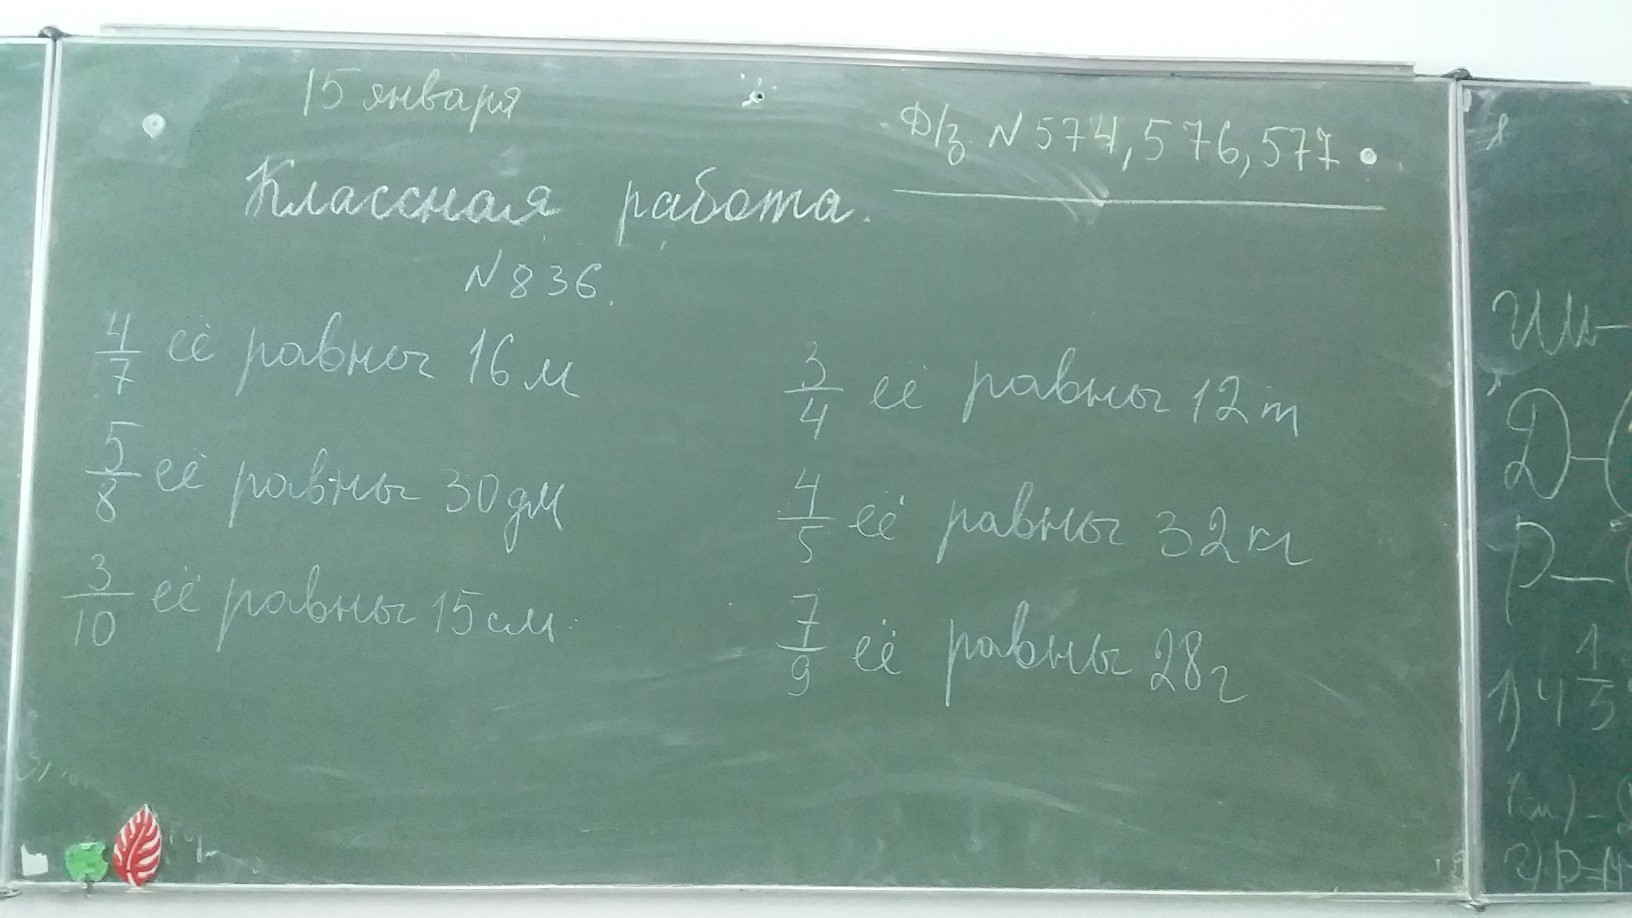 15 января
Д/з N 574, 576, 577
Классная работа.
N 836.
4/7 её равны 16 м
5/8 её равны 30 дм
3/10 её равны 15 см
3/4 её равны 12 т
4/5 её равны 32 кг
7/9 её равны 28 г
Д – (
Р – (
1) 4 1/5